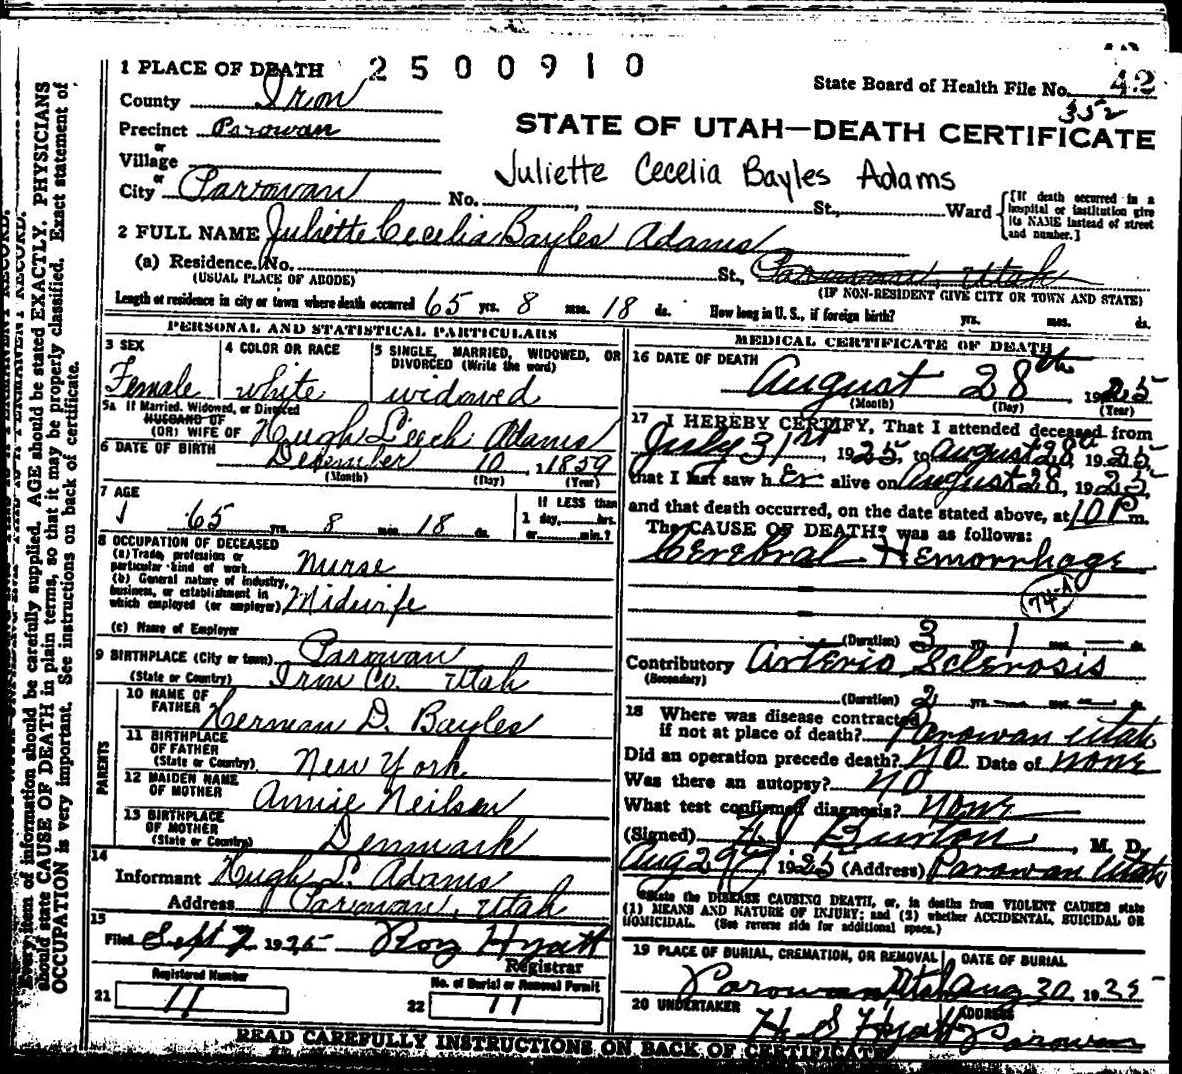 1 PLACE OF DEATH 2500910
State Board of Health File No. 42
352
County Iron
Precinct Parowan
STATE OF UTAH—DEATH CERTIFICATE
or
Village
or
City Parowan No. St., Ward
Juliette Cecelia Bayles Adams
[If death occurred in a
hospital or institution give
its NAME instead of street
and number.]
2 FULL NAME Juliette Cecelia Bayles Adams
(a) Residence. No. St., Parowan, Utah
(USUAL PLACE OF ABODE) (IF NON-RESIDENT GIVE CITY OR TOWN AND STATE)
Length of residence in city or town where death occurred 65 yrs. 8 mos. 18 ds. How long in U. S., if foreign birth? yrs. mos. ds.
PERSONAL AND STATISTICAL PARTICULARS
3 SEX
Female
4 COLOR OR RACE
white
5 SINGLE, MARRIED, WIDOWED, OR
DIVORCED (Write the word)
widowed
5a If Married, Widowed, or Divorced
HUSBAND OF
(OR) WIFE OF Hugh Leech Adams
6 DATE OF BIRTH December 10, 1859
(Month) (Day) (Year)
7 AGE
65 yrs. 8 mos. 18 ds.
If LESS than
1 day, hrs.
or min.?
8 OCCUPATION OF DECEASED
(a) Trade, profession or
particular kind of work Nurse
(b) General nature of industry,
business, or establishment in
which employed (or employer) Midwife
(c) Name of Employer
9 BIRTHPLACE (City or town) Parowan
(State or Country) Iron Co. Utah
PARENTS
10 NAME OF
FATHER Herman D. Bayles
11 BIRTHPLACE
OF FATHER
(State or Country) New York
12 MAIDEN NAME
OF MOTHER Annie Neilsen
13 BIRTHPLACE
OF MOTHER
(State or Country) Denmark
14
Informant Hugh L. Adams
Address Parowan, Utah
15
Filed Sept 7 1925 Roy Hyatt
Registrar
Registered Number
21 11
No. of Burial or Removal Permit
22 11
MEDICAL CERTIFICATE OF DEATH
16 DATE OF DEATH
August 28th, 1925
(Month) (Day) (Year)
17 I HEREBY CERTIFY, That I attended deceased from
July 31st, 1925, to August 28th 1925,
that I last saw her alive on August 28, 1925,
and that death occurred, on the date stated above, at 10 P m.
The CAUSE OF DEATH* was as follows:
Cerebral Hemorrhage
74-A
(Duration) 3 yrs. 1 mos. ds.
Contributory Arterio Sclerosis
(Secondary)
(Duration) 2 yrs. mos. ds.
18 Where was disease contracted
if not at place of death? Parowan Utah
Did an operation precede death? NO Date of None
Was there an autopsy? NO
What test confirmed diagnosis? None
(Signed) Burton, M. D.
Aug 29th 1925 (Address) Parowan Utah
*State the DISEASE CAUSING DEATH, or, in deaths from VIOLENT CAUSES state
(1) MEANS AND NATURE OF INJURY; and (2) whether ACCIDENTAL, SUICIDAL OR
HOMICIDAL. (See reverse side for additional space.)
19 PLACE OF BURIAL, CREMATION, OR REMOVAL DATE OF BURIAL
Parowan Utah Aug 30, 1925
20 UNDERTAKER ADDRESS
H S Hyatt Parowan
READ CAREFULLY INSTRUCTIONS ON BACK OF CERTIFICATE
Every item of information should be carefully supplied. AGE should be stated EXACTLY. PHYSICIANS
should state CAUSE OF DEATH in plain terms, so that it may be properly classified. Exact statement of
OCCUPATION is very important. See instructions on back of certificate.